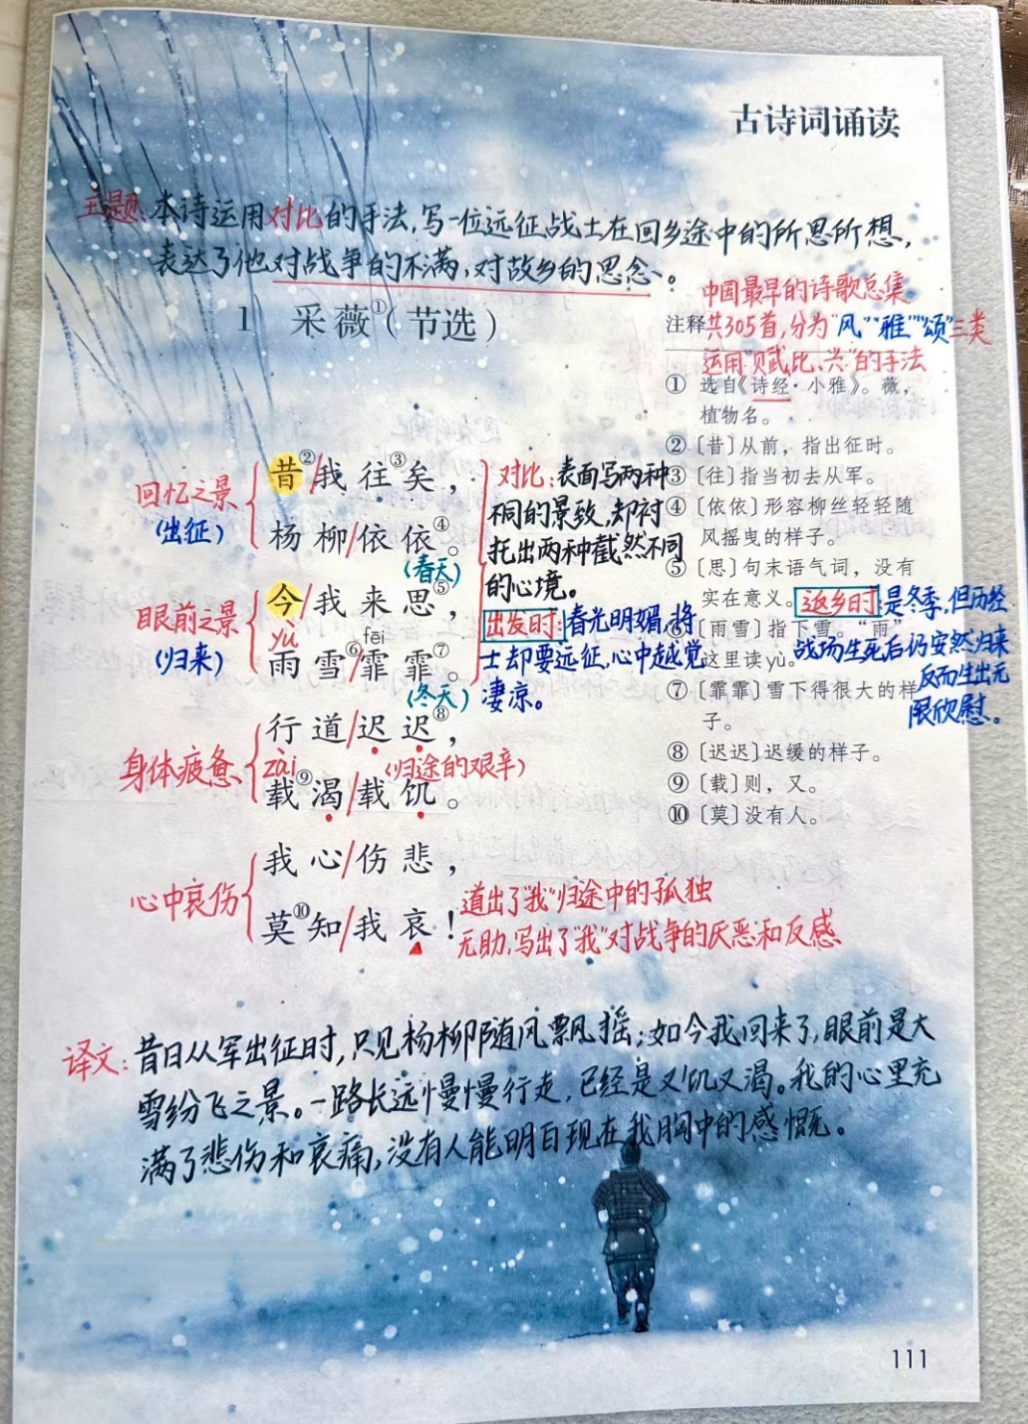 古诗词诵读
主题:本诗运用对比的手法,写一位远征战士在回乡途中的所思所想,
表达了他对战争的不满,对故乡的思念。
1 采薇①(节选)
回忆之景
(出征)
昔②/我往③矣,
杨柳/依依④。
(春天)
眼前之景
(归来)
今/我来思⑤,
yù
fēi
雨雪⑥/霏霏⑦。
(冬天)
身体疲惫
行道/迟迟⑧,
zài
(归途的艰辛)
载⑨渴/载饥。
心中哀伤
我心/伤悲,
莫⑩知/我哀!
道出了“我”归途中的孤独
无助,写出了“我”对战争的厌恶和反感
对比:表面写两种
不同的景致,却衬
托出两种截然不同
的心境。
出发时:春光明媚,将
士却要远征,心中越觉
凄凉。
中国最早的诗歌总集
注释
共305首,分为“风”“雅”“颂”三类
运用“赋、比、兴”的手法
① 选自《诗经·小雅》。薇,
植物名。
②〔昔〕从前,指出征时。
③〔往〕指当初去从军。
④〔依依〕形容柳丝轻轻随
风摇曳的样子。
⑤〔思〕句末语气词,没有
实在意义。
返乡时:是冬季,但历经
战场生死后仍安然归来
反而生出无
限欣慰。
⑥〔雨雪〕指下雪。“雨”
这里读yù。
⑦〔霏霏〕雪下得很大的样
子。
⑧〔迟迟〕迟缓的样子。
⑨〔载〕则,又。
⑩〔莫〕没有人。
译文:昔日从军出征时,只见杨柳随风飘摇;如今我回来了,眼前是大
雪纷飞之景。一路长远慢慢行走,已经是又饥又渴。我的心里充
满了悲伤和哀痛,没有人能明白现在我胸中的感慨。
111